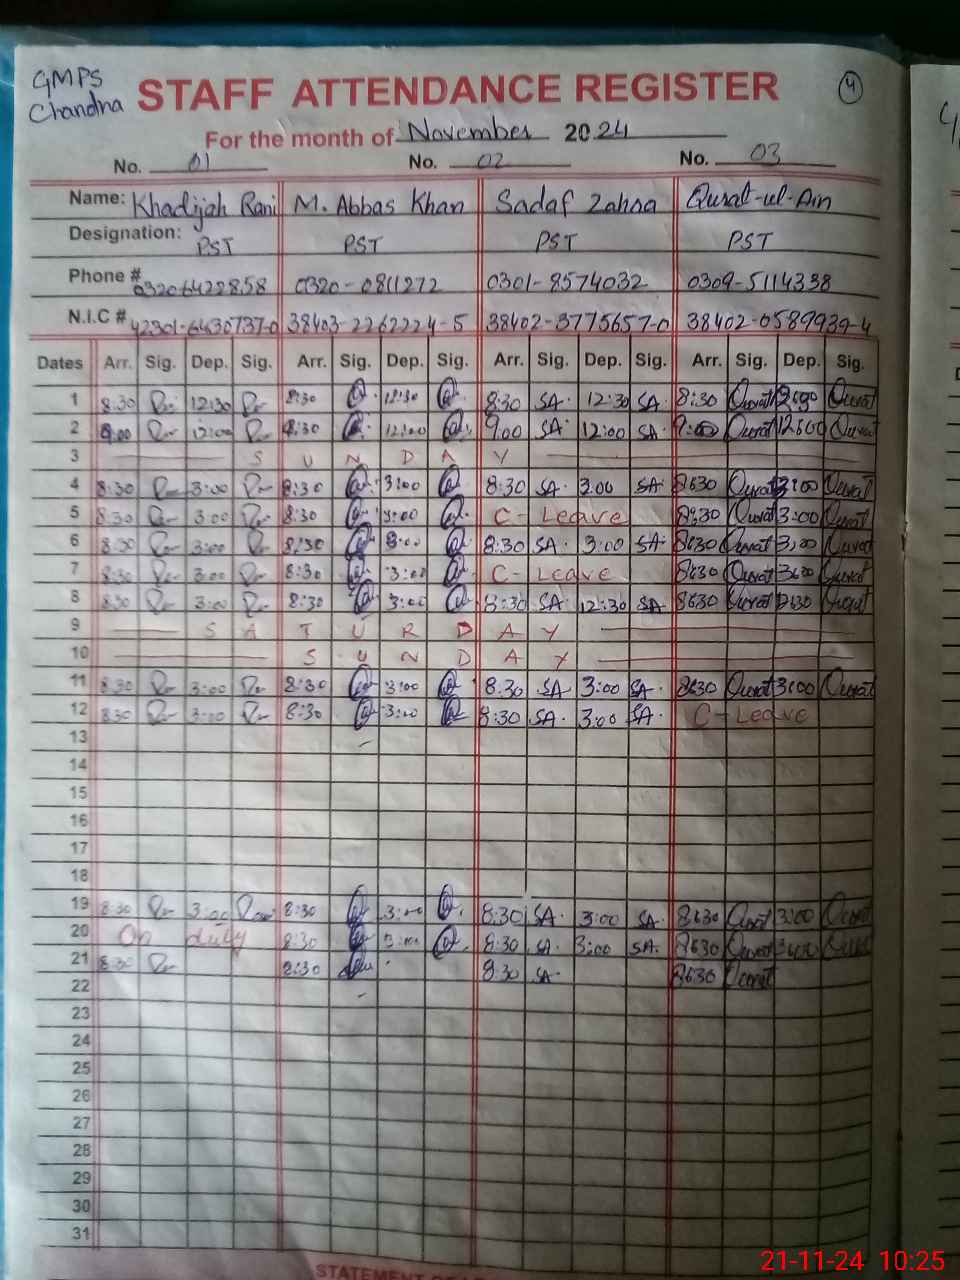 GMPS
Chandna
STAFF ATTENDANCE REGISTER
4
For the month of November 2024
No. 01 No. 02 No. 03
Name: Khadijah Rani M. Abbas Khan Sadaf Zahra Qurat-ul-Ain
Designation: PST PST PST PST
Phone # 03206422858 0320-0811272 0301-8574032 0309-5114338
N.I.C # 42301-6430737-0 38403-2262224-5 38402-3775657-0 38402-0589939-4
Dates Arr. Sig. Dep. Sig. Arr. Sig. Dep. Sig. Arr. Sig. Dep. Sig. Arr. Sig. Dep. Sig.
1 8:30 12:30 8:30 12:30 8:30 SA. 12:30 SA. 8:30 Qurat Qurat
2 9:00 12:00 12:00 9:00 SA. 12:00 SA. 9:00 Qurat 12:00 Qurat
3 SUNDAY
4 8:30 3:00 8:30 3:00 8:30 SA. 3:00 SA. 8:30 Qurat 3:00 Qurat
5 8:30 3:00 8:30 3:00 C-Leave 8:30 Qurat 3:00 Qurat
6 8:30 3:00 8:30 3:00 8:30 SA. 3:00 SA. 8:30 Qurat 3:00 Qurat
7 8:30 3:00 8:30 3:00 C-Leave 8:30 Qurat 3:00 Qurat
8 8:30 3:00 8:30 3:00 8:30 SA. 12:30 SA 8:30 Qurat Qurat
9 SATURDAY
10 SUNDAY
11 8:30 3:00 8:30 3:00 8:30 SA 3:00 SA. 8:30 Qurat 3:00 Qurat
12 8:30 3:00 8:30 3:00 8:30 SA. 3:00 SA. C-Leave
13
14
15
16
17
18
19 8:30 3:00 8:30 3:00 8:30 SA. 3:00 SA. 8:30 Qurat 3:00 Qurat
20 On duty 8:30 3:00 8:30 SA. 3:00 SA. 8:30 Qurat 3:00 Qurat
21 8:30 8:30 8:30 SA. 8:30 Qurat
22
23
24
25
26
27
28
29
30
31
STATEMENT
21-11-24 10:25